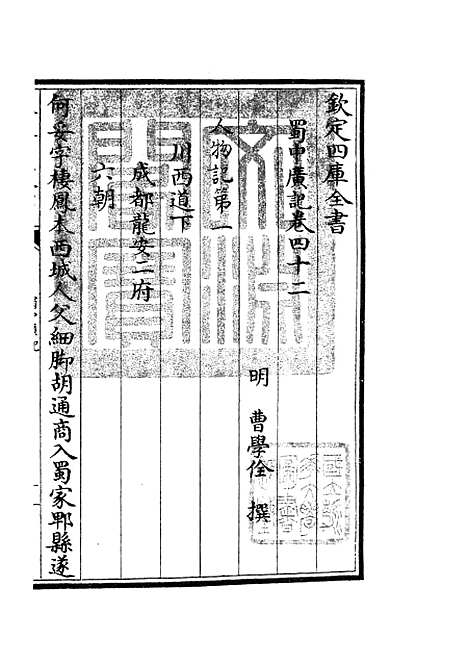 欽定四庫全書
蜀中廣記卷四十二
明 曹學佺 撰
人物記第二
川西道下
成都龍安二府
六朝
何妥字棲鳳本西城人父細脚胡通商入蜀家郫縣遂